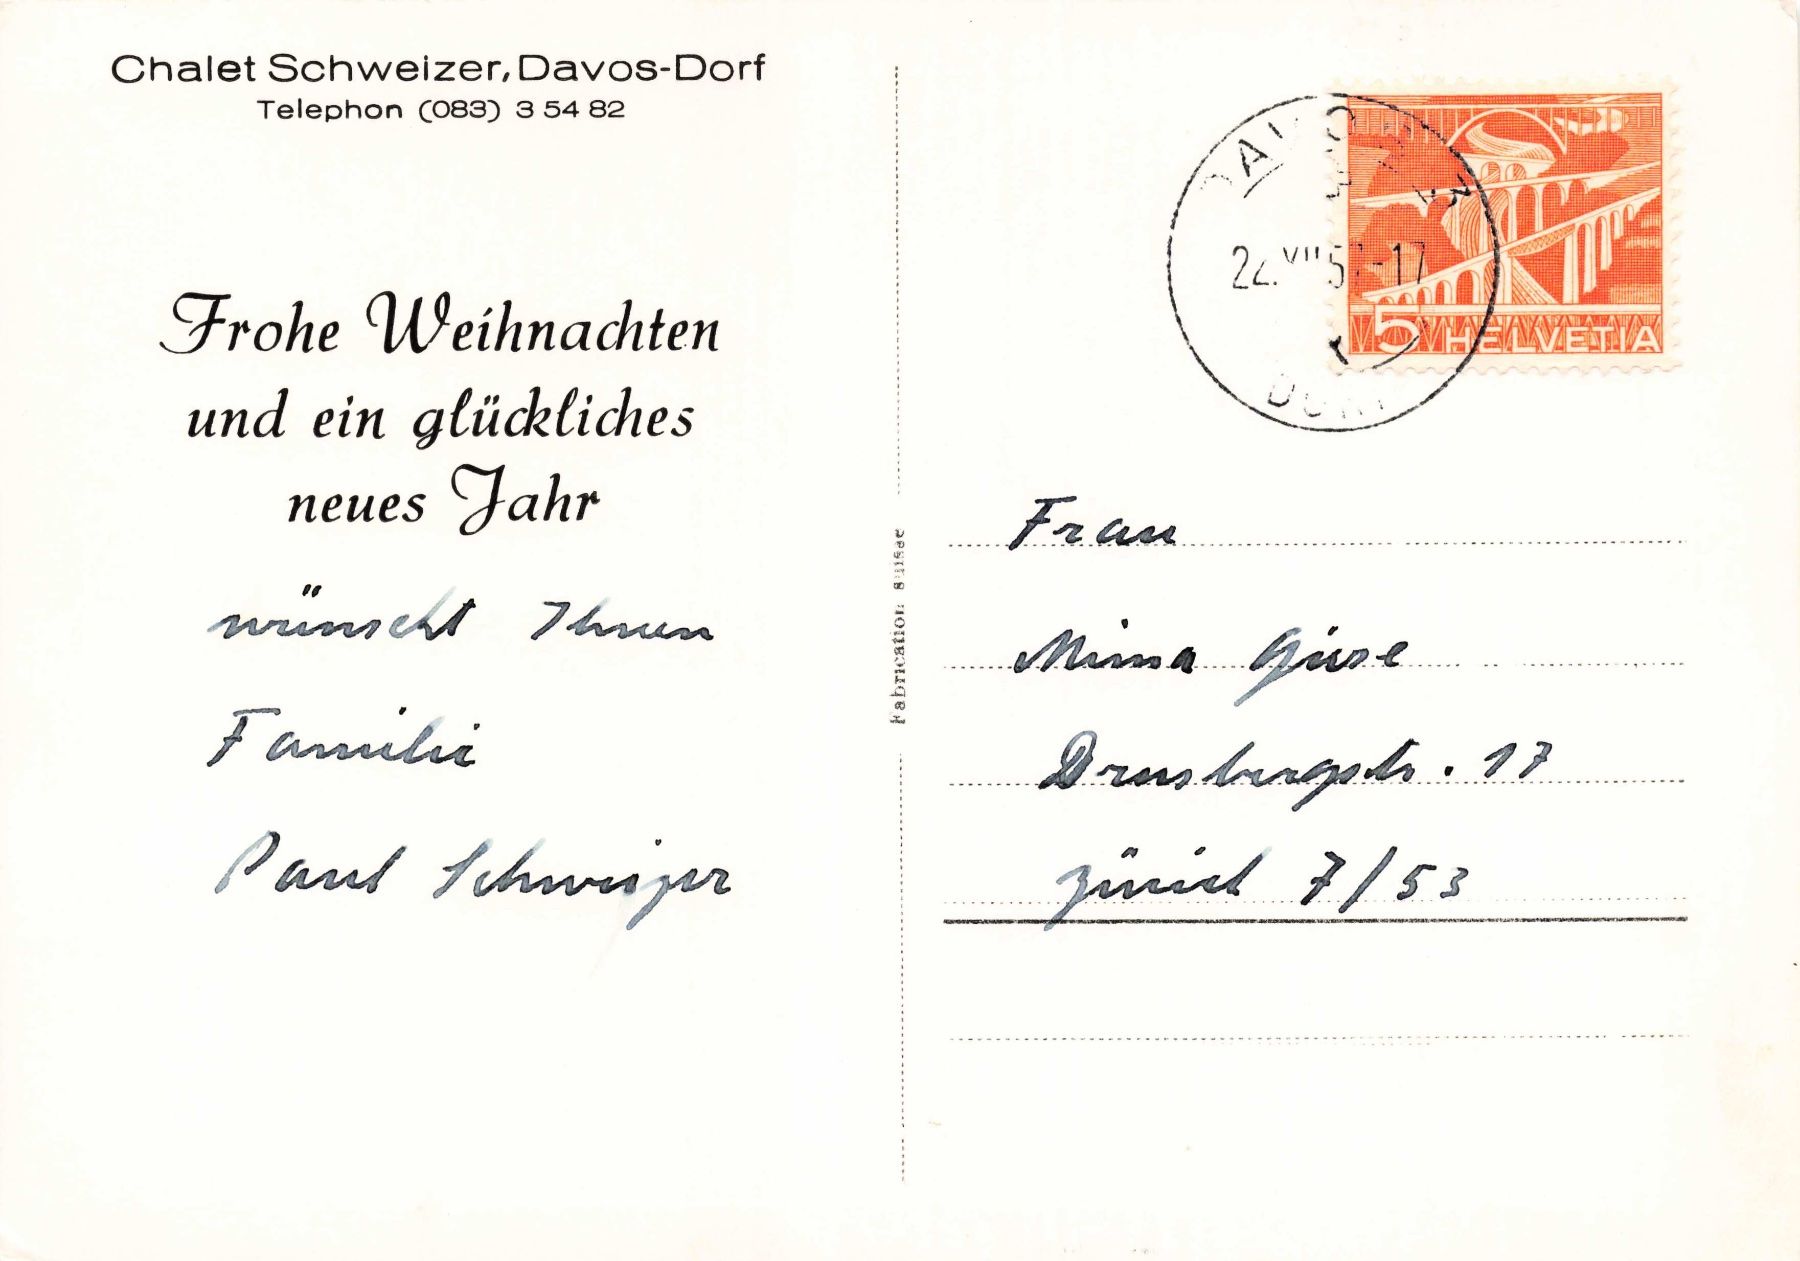 Chalet Schweizer, Davos-Dorf
Telephon (083) 3 54 82
Frohe Weihnachten
und ein glückliches
neues Jahr
wünscht Ihnen
Familie
Paul Schweizer
Fabrication suisse
DAVOS
22.XII.5 -17
DORF
5 HELVETIA
Frau
Mina
Drusbergstr. 17
Zürich 7/53